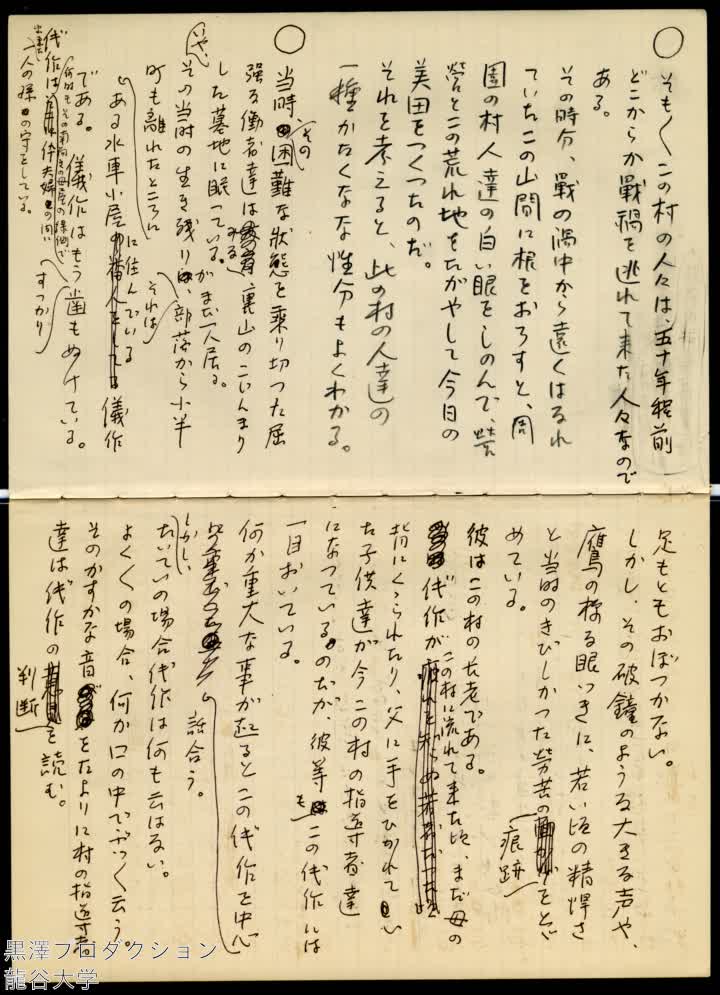 ○ そも〱この村の人々は、五十年程前
どこからか戰禍を逃れて来た人々なので
ある。
その時分、戰の渦中から遠くはなれ
ていたこの山間に根をおろすと、周
囲の村人達の白い眼をしのんで、営
営とこの荒れ地をたがやして今日の
美田をつくつたのだ。
それを考えると、此の村の人達の
一種かたくなな性分もよくわかる。
○ 当時のその困難な狀態を乗り切つた屈
強な働者達はみな裏山のこじんまり
した墓地に眠っている。がまだ一人居る。
いや、その当时の生き残りは、それは部落から小半
町も離れたところに
ある水車小屋に住んでいる儀作
である。儀作はもうすつかり歯もぬけている。
代作は
一人の孫の守をしている。
足もともおぼつかない。
しかし、その破鐘のような大きな声や、
鷹の様な眼つきに、若い頃の精悍さ
と当时のきびしかつた勞苦の痕跡をとゞ
めている。
彼はこの村の長老である。
代作がこの村に流れて来た頃、まだ母の
背にくゝられたり、父に手をひかれてい
た子供達が今この村の指導者達
になつている。のだが、彼等もこの代作には
一目おいている。
何か重大な事が起るとこの代作を中心
に
話合う。
しかし、たいていの場合代作は何も云はない。
よく〱の場合、何か口の中でぶつ〱云う。
そのかすかな音をたよりに村の指導者
達は代作の判断を読む。
黒澤プロダクション
龍谷大学